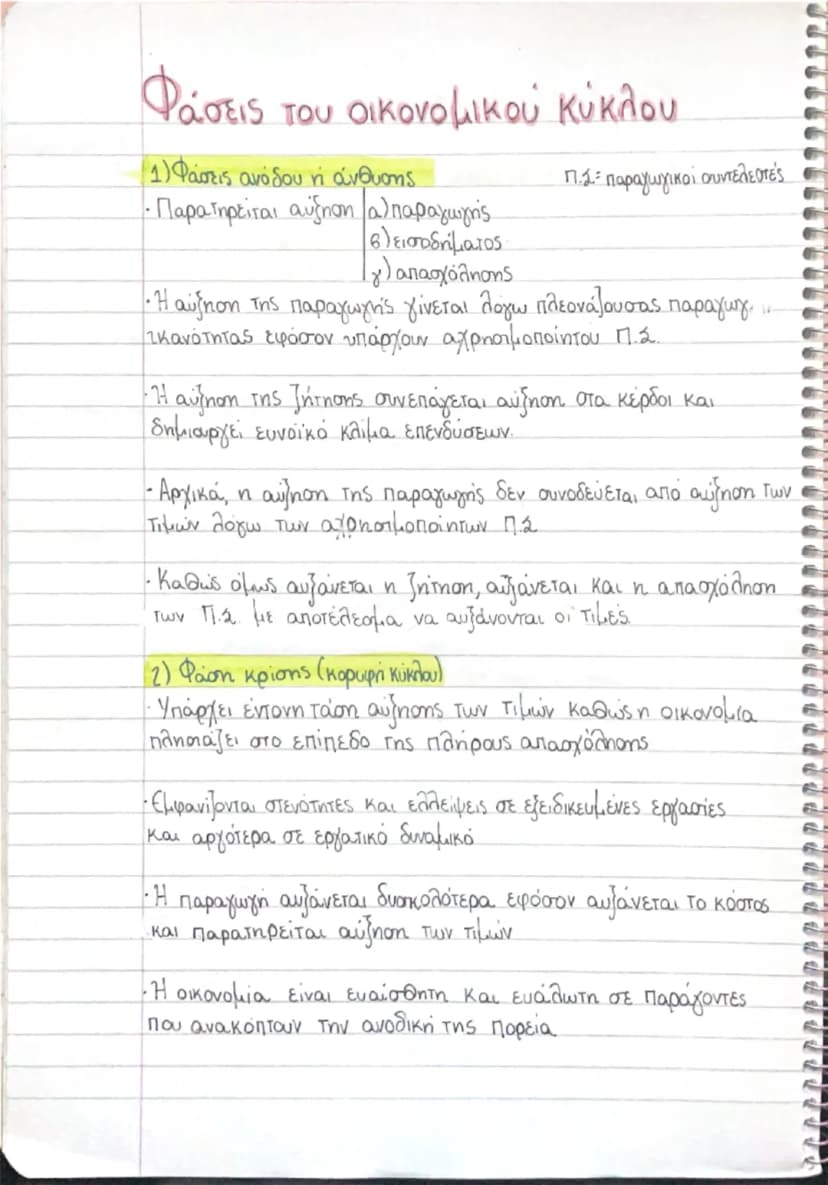 Φάσεις του οικονομικού κύκλου
1) Φάσεις ανόδου ή άνθυσης
Π.Σ= παραγωγικοί συντελεστές
· Παρατηρείται αύξηση α) παραγωγής
β) εισοδήματος
γ) απασχόλησης
· Η αύξηση της παραγωγής γίνεται λόγω πλεονάζουσας παραγωγ.
ικανότητας εφόσον υπάρχουν αχρησιμοποίητου Π.Σ.
· Η αύξηση της ζήτησης συνεπάγεται αύξηση στα κέρδοι και
δημιουργεί ευνοϊκό κλίμα επενδύσεων.
- Αρχικά, η αύξηση της παραγωγής δεν συνοδεύεται από αύξηση των
τιμών λόγω των αχρησιμοποίητων Π.Σ
· Καθώς όμως αυξάνεται η ζήτηση, αυξάνεται και η απασχόληση
των Π.Σ. με αποτέλεσμα να αυξάνονται οι τιμές.
2) Φάση κρίσης (κορυφή κύκλου)
· Υπάρχει έντονη τάση αύξησης των τιμών καθώς η οικονομία
πλησιάζει στο επίπεδο της πλήρους απασχόλησης
· Εμφανίζονται στενότητες και ελλείψεις σε εξειδικευμένες εργασίες
και αργότερα σε εργατικό δυναμικό
· Η παραγωγή αυξάνεται δυσκολότερα εφόσον αυξάνεται το κόστος
και παρατηρείται αύξηση των τιμών
· Η οικονομία είναι ευαίσθητη και ευάλωτη σε παράγοντες
που ανακόπτουν την ανοδική της πορεία